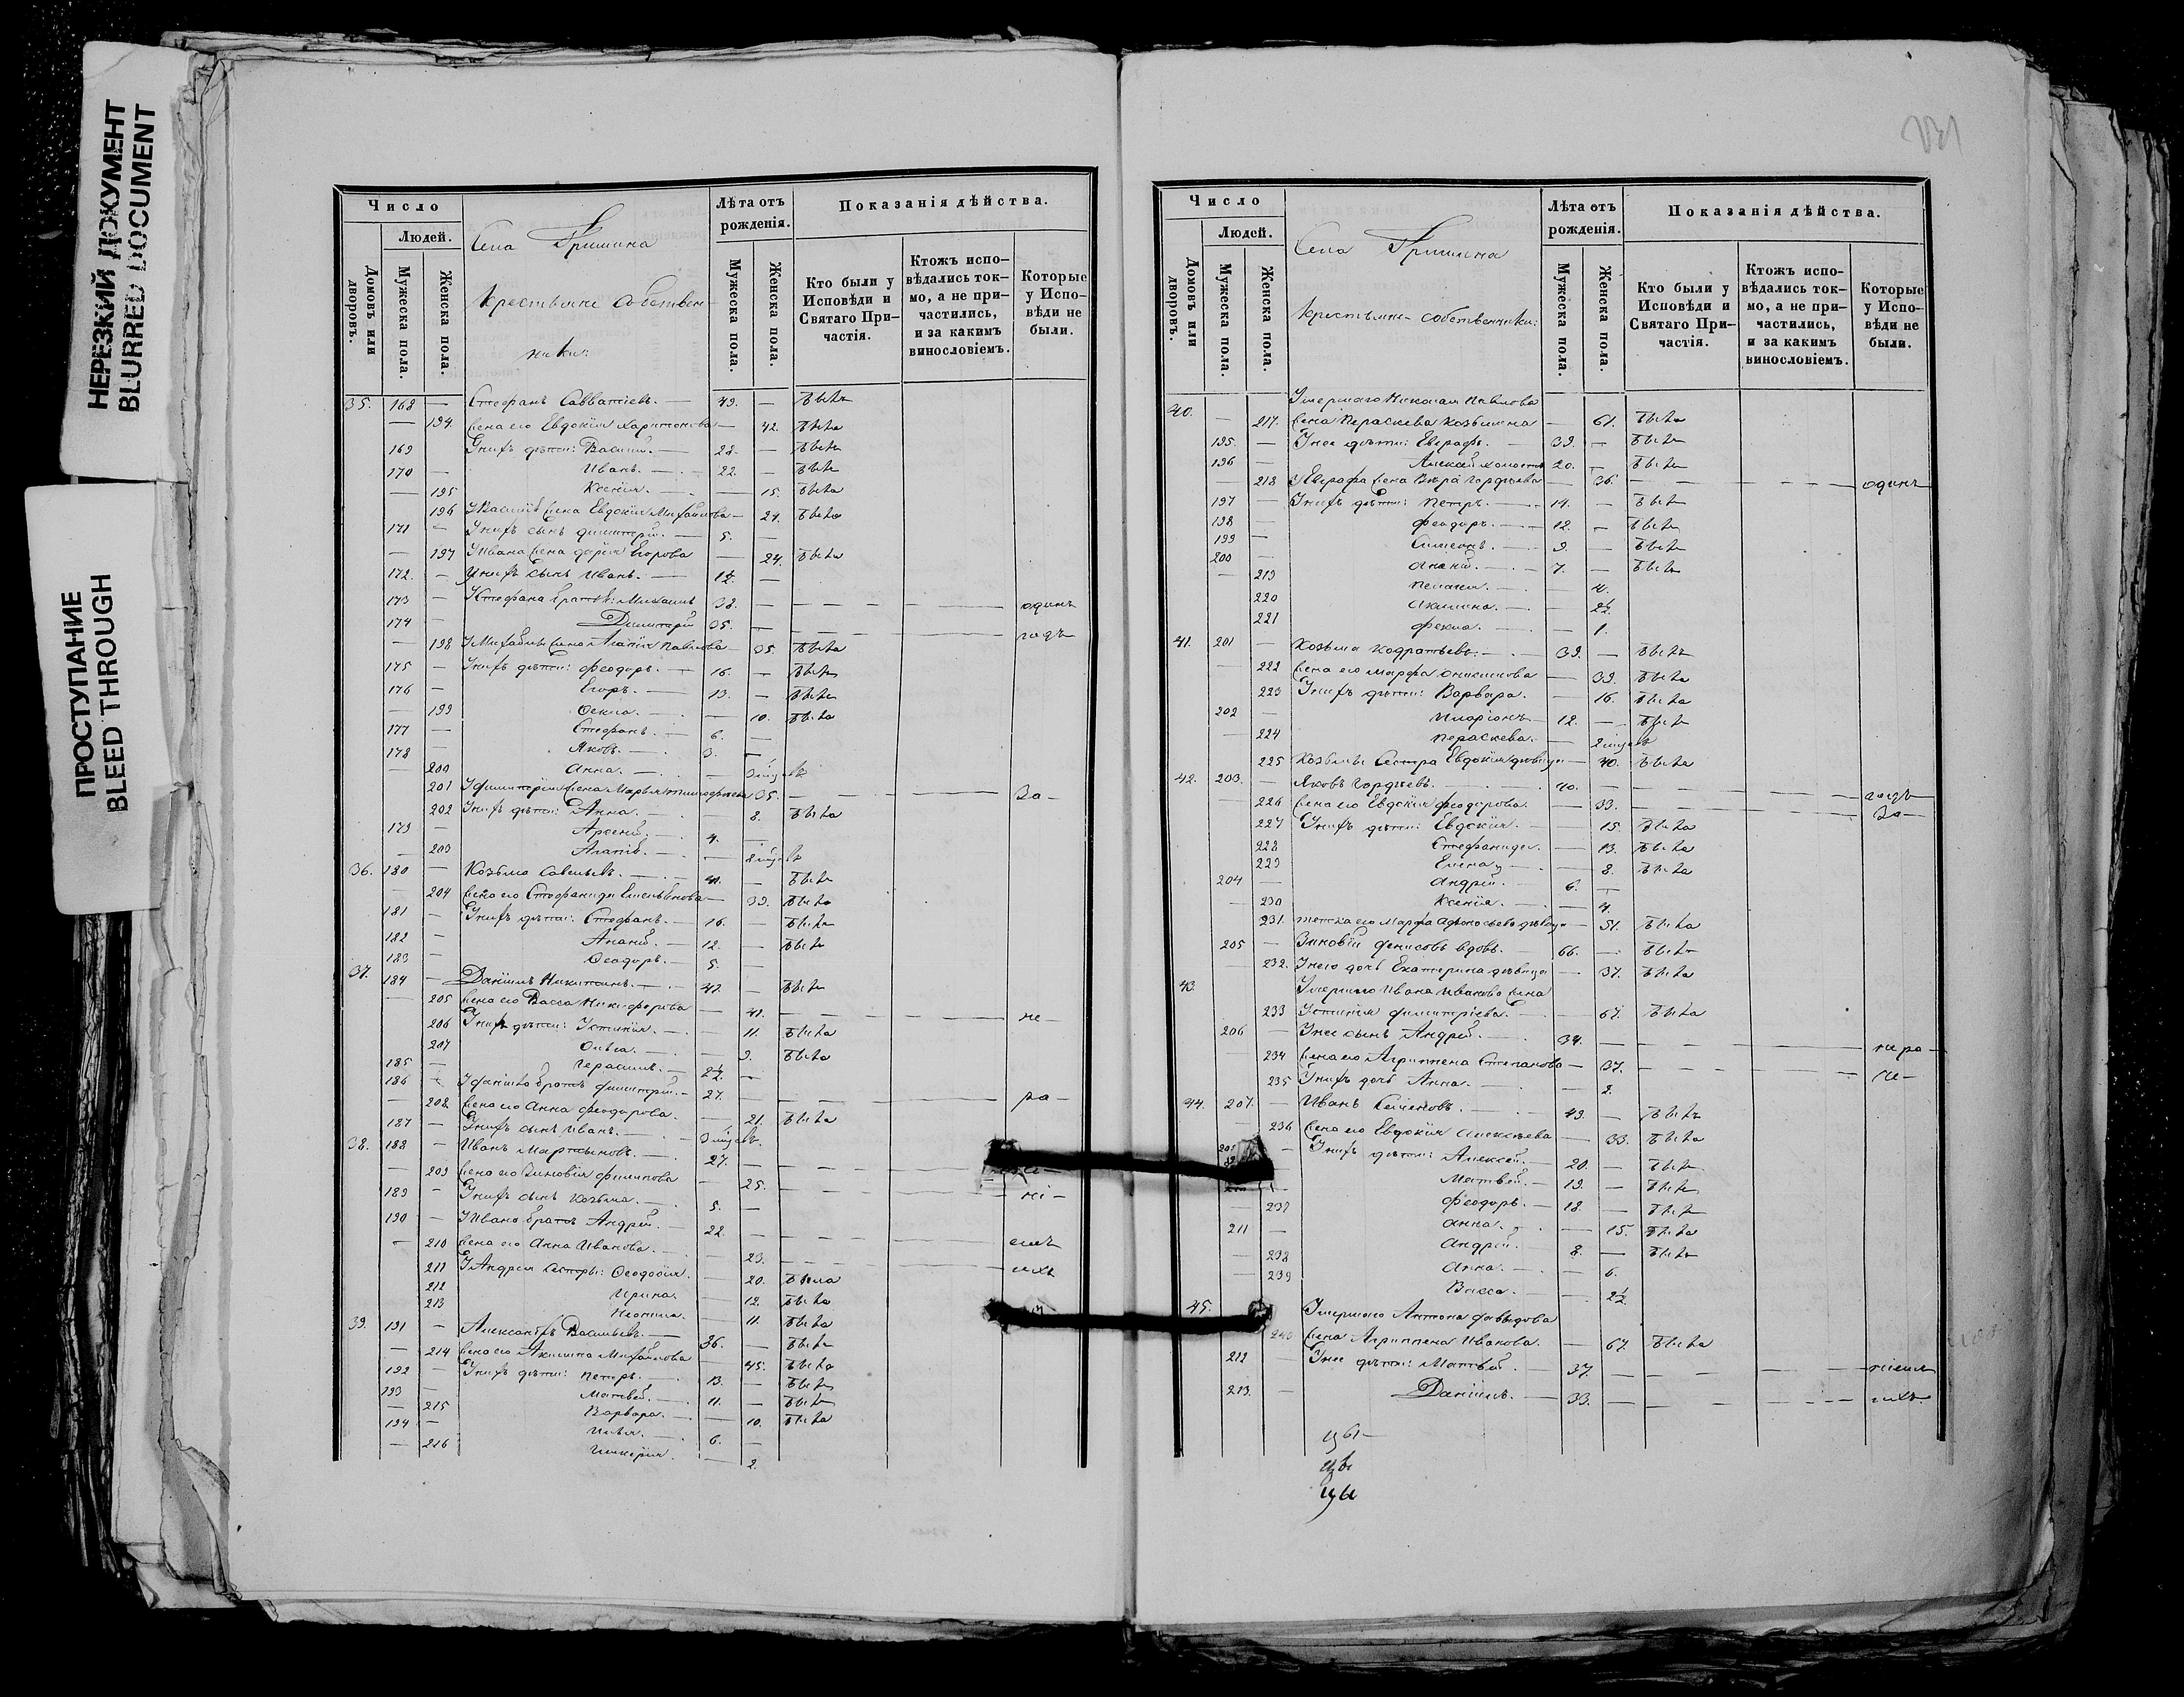 НЕРЕЗКИЙ ДОКУМЕНТ
BLURRED DOCUMENT
ПРОСТУПАНИЕ
BLEED THROUGH
Число
Людей.
Домовъ или дворовъ.
Мужеска пола.
Женска пола.
Села Гришина
Крестьяне собствен-
ники:
Лѣта отъ рожденія.
Мужеска пола.
Женска пола.
Показанія дѣйства.
Кто были у Исповѣди и Святаго При-частія.
Ктожъ испо-вѣдались ток-мо, а не при-частились, и за какимъ винословіемъ.
Которые у Испо-вѣди не были.
35. 168 — Стефанъ Савватіевъ. — 49. — Былъ
— 194. Жена его Евдокія Харитонова — 42. Была
169 У нихъ дѣти: Василій. — 28. — Былъ
170 — Иванъ. — 22. — Былъ
— 195 Ксенія. — 15. Была
196 У Василія жена Евдокія Михайлова — 24. Была
171 — У нихъ сынъ Димитрій. — 5. —
— 197 У Ивана жена Дарія Егорова — 24. Была
172. — У нихъ сынъ Иванъ. — 1½. —
173 — У Стефана братья: Михаилъ 38. — — — одинъ
174 — Димитрій 35. — — годъ
— 198 У Михаила жена Павлова — 35. Была
175 — У нихъ дѣти: Феодоръ. — 16. — Былъ
176 — Егоръ. — 13. — Былъ
— 199 Ѳекла. — — 10. Была
177 — Стефанъ. — 6. —
178 — Яковъ. — 3. —
— 200 Анна. — —
201 У Димитрія жена Марья Тимофеева 35. — — — За —
202 У нихъ дѣти: Анна. — 8. Была
179 — Арсеній. — 4. —
— 203
36. 180 — Козьма Савельевъ. — 41. — Былъ
— 204 Жена его Стефанида Емельянова — 39. Была
181 — У нихъ дѣти: Стефанъ. — 16. — Былъ
182 — Ананій. — 12. — Былъ
183 — Ѳеодоръ. — 5. —
37. 184 — Даніилъ Никитинъ. — 42. — Былъ
— 205 Жена его Васса Никифорова — 41. — — — не —
206 У нихъ дѣти: Устинія. — 11. Была
207 Ольга. — 9. Была
185 — Герасимъ. — 2½. —
186 — У Даніила братъ Димитрій. — 27. — — — ра —
— 208 Жена его Анна Феодорова. — 21. Была
187 — У нихъ сынъ Иванъ. —
38. 188 — Иванъ Мартыновъ. — 27. — — —
— 209 Жена его Зиновія Филипова — 25. — — — ні —
189 — У нихъ сынъ Козьма. — 5. —
190 — У Ивана братъ Андрей. — 22. — — — емъ
— 210 Жена его Анна Иванова. — 23. — — — ихъ
211 У Андрея сестры: Ѳеодосія. — 20. Была
212 Ирина. — 12. Была
213 Неонила. — 11. Была
39. 191 — Александръ Васильевъ. — 36. — Былъ
— 214 Жена его Акилина Михайлова — 45. Была
192 — У нихъ дѣти: Петръ. — 13. — Былъ
193 — Матвѣй. — 11. — Былъ
— 215 Варвара. — — 10. Была
194 — Илья. — 6. —
— 216 Гликерія. — 2.
Число
Людей.
Домовъ или дворовъ.
Мужеска пола.
Женска пола.
Села Гришина
Крестьяне собственники:
Лѣта отъ рожденія.
Мужеска пола.
Женска пола.
Показанія дѣйства.
Кто были у Исповѣди и Святаго При-частія.
Ктожъ испо-вѣдались ток-мо, а не при-частились, и за какимъ винословіемъ.
Которые у Испо-вѣди не были.
40. Умершаго Николая Павлова
— 217. Жена Параскева Козьмина — 61. Была
195. — У нее дѣти: Евграфъ. — 39. — Былъ
196 — Алексѣй холостъ 20. — Былъ
— 218 У Евграфа жена Вѣра Гордѣева — 36. — — — одинъ
197 — У нихъ дѣти: Петръ. — 14. — Былъ
198 — Феодоръ. — 12. — Былъ
199 — Симеонъ. — 9. — Былъ
200 — Ананій. — 7. — Былъ
— 219 Пелагія. — 4.
220 Акилина. — 2½.
221 Фекла. — 1.
41. 201 — Козьма Кодратьевъ. — 39. — Былъ
— 222 Жена его Марфа Оникимова — 39. Была
223 У нихъ дѣти: Варвара. — 16. Была
202 — Иларіонъ — 12. — Былъ
— 224 Параскева. —
225 Козьмы сестра Евдокія дѣвица — 40. Была
42. 203. — Яковъ Гордѣевъ. 40. — — — годъ
— 226 Жена его Евдокія Феодорова. — 39. — — — За —
227 У нихъ дѣти: Евдокія. — 15. Была
228 Стефанида. — 13. Была
229 Елена — 8. Была
204 — Андрей. — 6. —
— 230 Ксенія. — 4.
231. Тетка его Марфа дѣвица — 51. Была
205 — Зиновій Денисовъ вдовъ. 66. — Былъ
— 232. У него дочь Екатерина дѣвица — 37. Была
43. Умершаго Ивана Иванова жена
233 Устинія Димитріева. — 67. Была
206 — У нее сынъ Андрей. — 34. — — — нера —
234 Жена его Агриппена Степанова — 37. — — — де —
235 У нихъ дочь Анна. — 2.
44. 207. — Иванъ Семеновъ. — 49. — Былъ
— 236 Жена его Евдокія Алексѣева — 33. Была
— У нихъ дѣти: Алексѣй. — 20. — Былъ
Матвѣй. — 19. — Былъ
— 237 Феодоръ. — 18. — Былъ
211 — Анна. — 15. Была
— 238 Андрей. 8. — Былъ
— 239 Анна. — 6.
Васса. — 2½.
45. Умершаго Антона Давыдова
240 Жена Агриппена Иванова. — 67. Была
212 — У нее дѣти: Матвѣй. — 37. — — — ніемъ
213. — Даніилъ. — 33. — — — ихъ